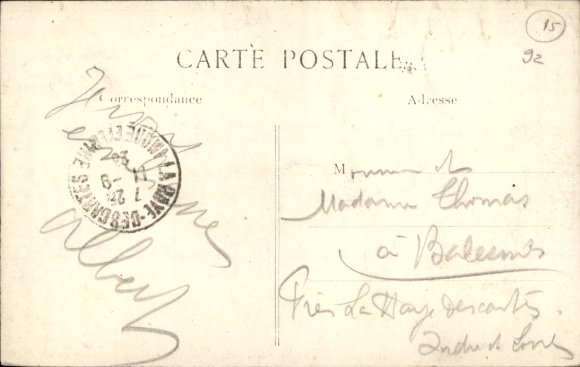 15
92
CARTE POSTALE
Correspondance
Adresse
Albert
LA HAYE-DESCARTES
7-9
26
Monsieur et
Madame Thomas
à Balesmes
Près La Haye Descartes
Indre et Loire